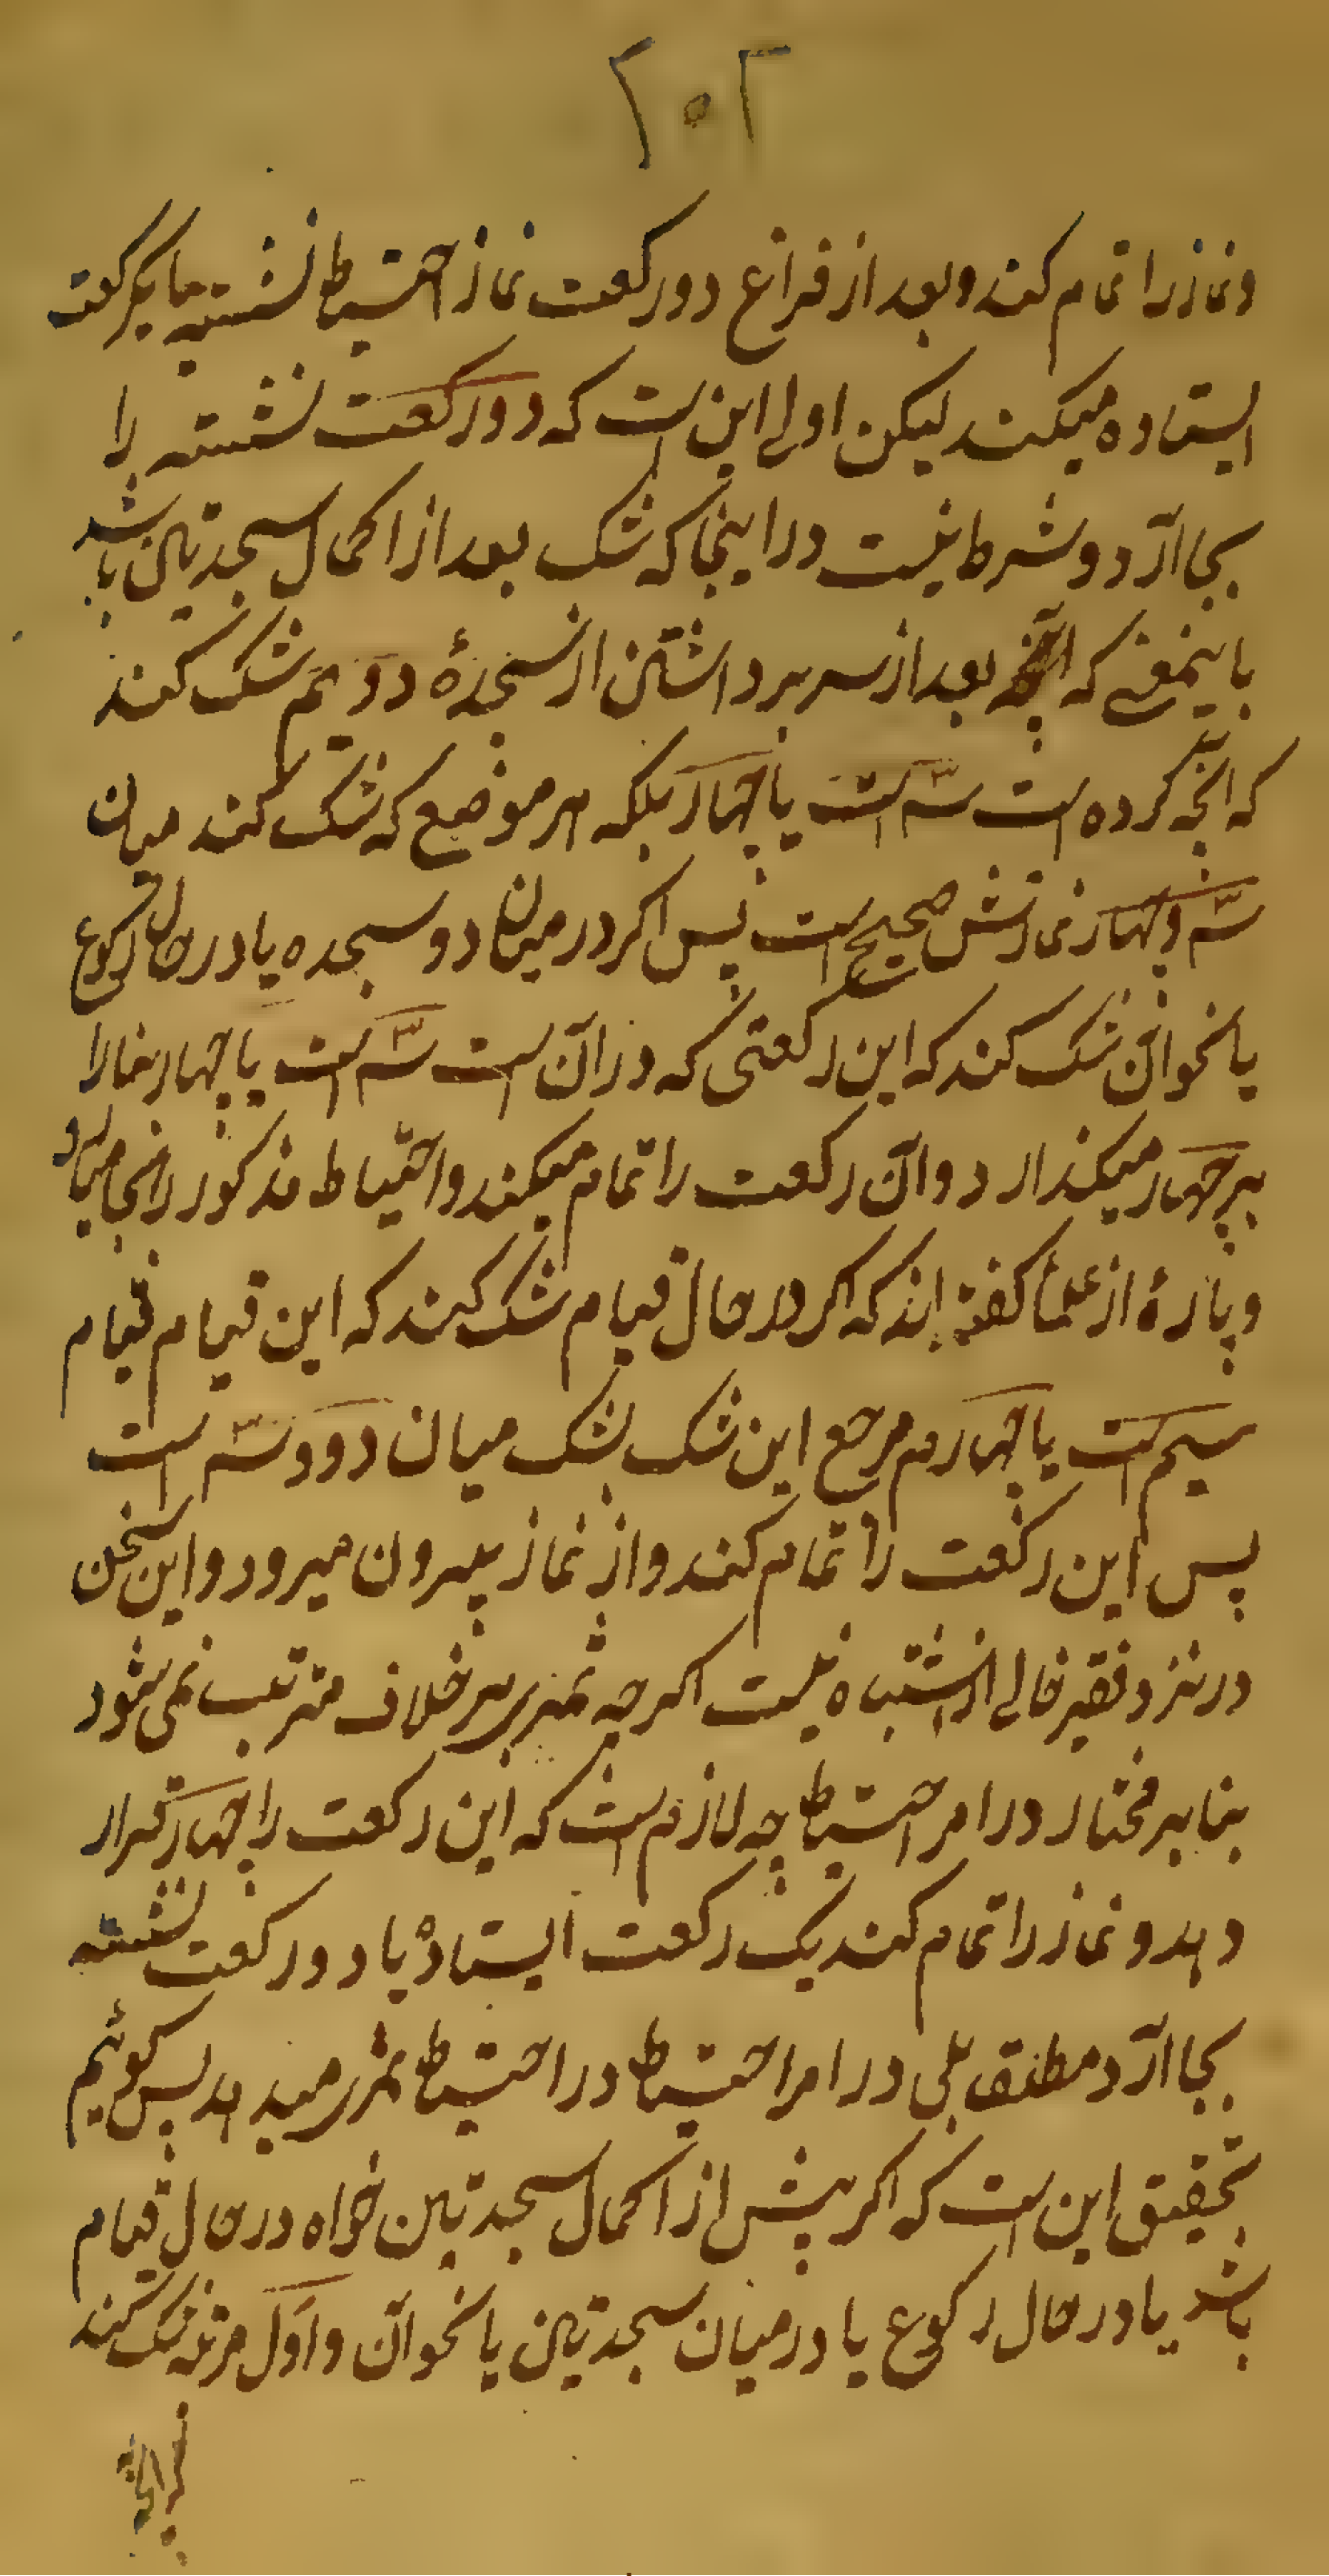 ۲۰۲
و نماز را تمام کند و بعد از فراغ دو رکعت نماز احتیاط نشسته یا یکرکعت
ایستاده میکند لیکن اولی این است که دو رکعت نشسته را
بجا آرد و شرط نیست در اینجا که شک بعد از اکمال سجدتین باشد
باینمعنی که بعد از سر برداشتن از سجدهٔ دویم شک کند
که آنچه کرده است سه است یا چهار بلکه هر موضع که شک کند میان
سه و چهار نمازش صحیح است پس اکر در میان دو سجده یا در حال رکوع
یا نحو آن شک کند که این رکعتی که در آن است سه است یا چهار بنا را
بر چهار میکذارد و آن رکعت را تمام میکند و احتیاط مذکور را بجا میآرد
و پارهٔ از علما کفته اند که اکر در حال قیام شک کند که این قیام قیام
سیم است یا چهارم مرجع این شک بشک میان دو و سه است
پس این رکعت را تمام کند و از نماز بیرون میرود و این سخن
در نزد فقیر خالی از اشتباه نیست اکرچه ثمر بر خلاف مترتب نمی شود
بنا بر مختار در امر احتیاط چه لازم است که این رکعت را چهار قرار
دهد و نماز را تمام کند یک رکعت ایستاده یا دو رکعت نشسته
بجا آرد مطلقا بلی در امر احتیاط در احتیاط ثمر میدهد پس کوئیم
تحقیق این است که اکر پیش از اکمال سجدتین خواه در حال قیام
باشد یا در حال رکوع یا در میان سجدتین یا نحو آن و اول مرتبه شک کند